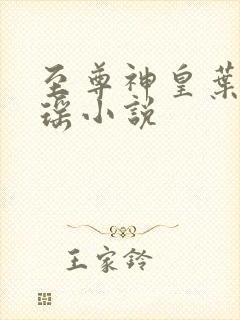 至尊神皇葉
瑶小說
王家鈴